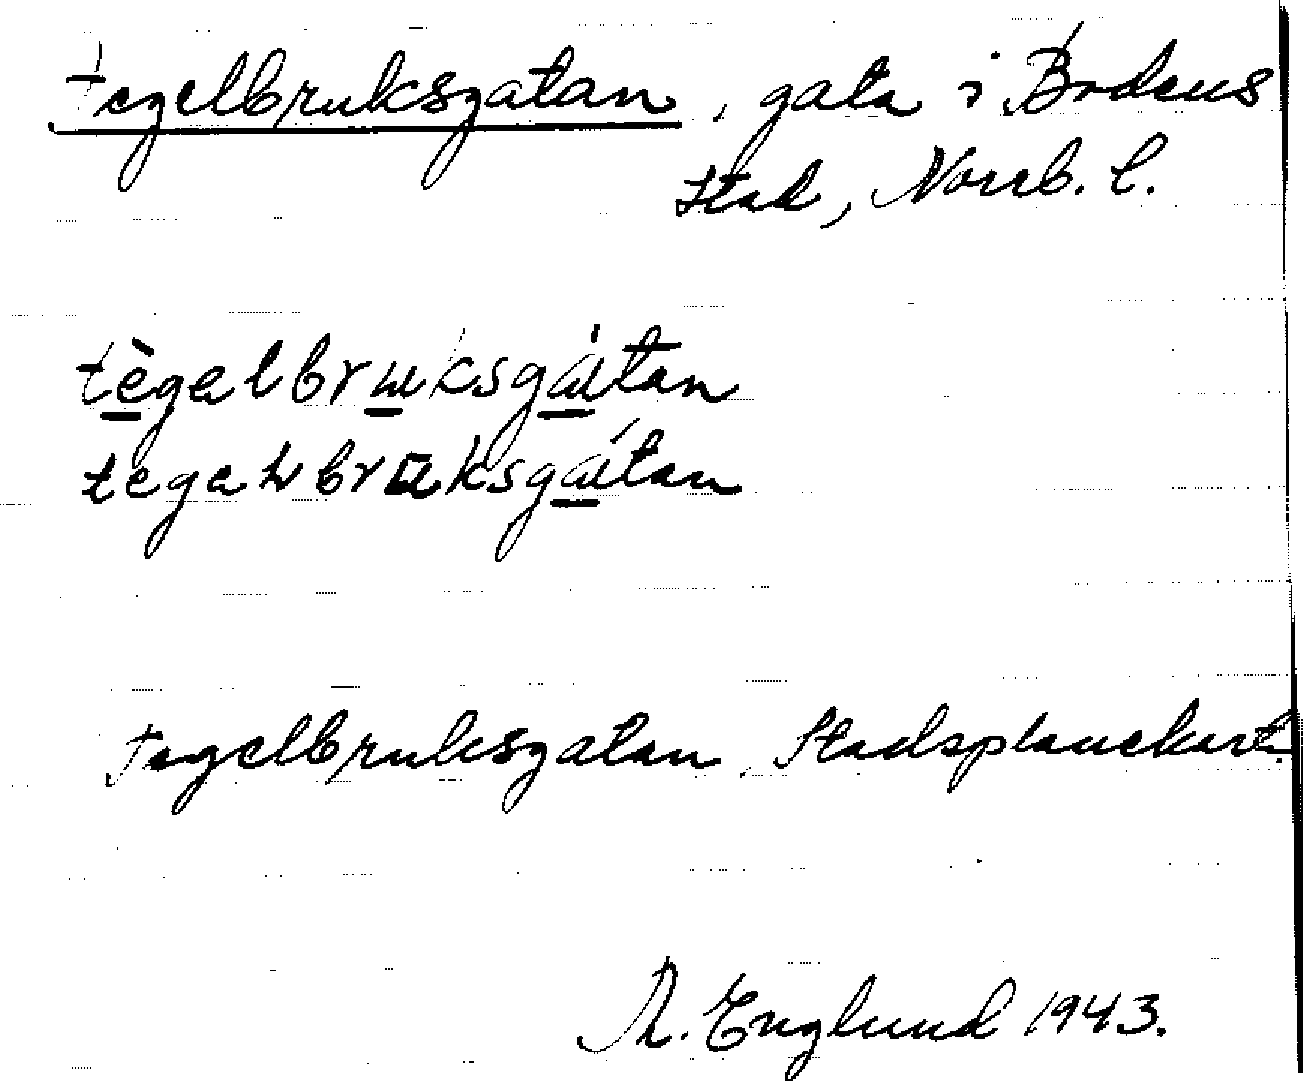 Tegelbruksgatan, gata i Bodens
stad, Norrb. l.
tègelbruksgátan
tegalbruksgátan
Tegelbruksgatan, Stadsplanekart.
R. Englund 1943.